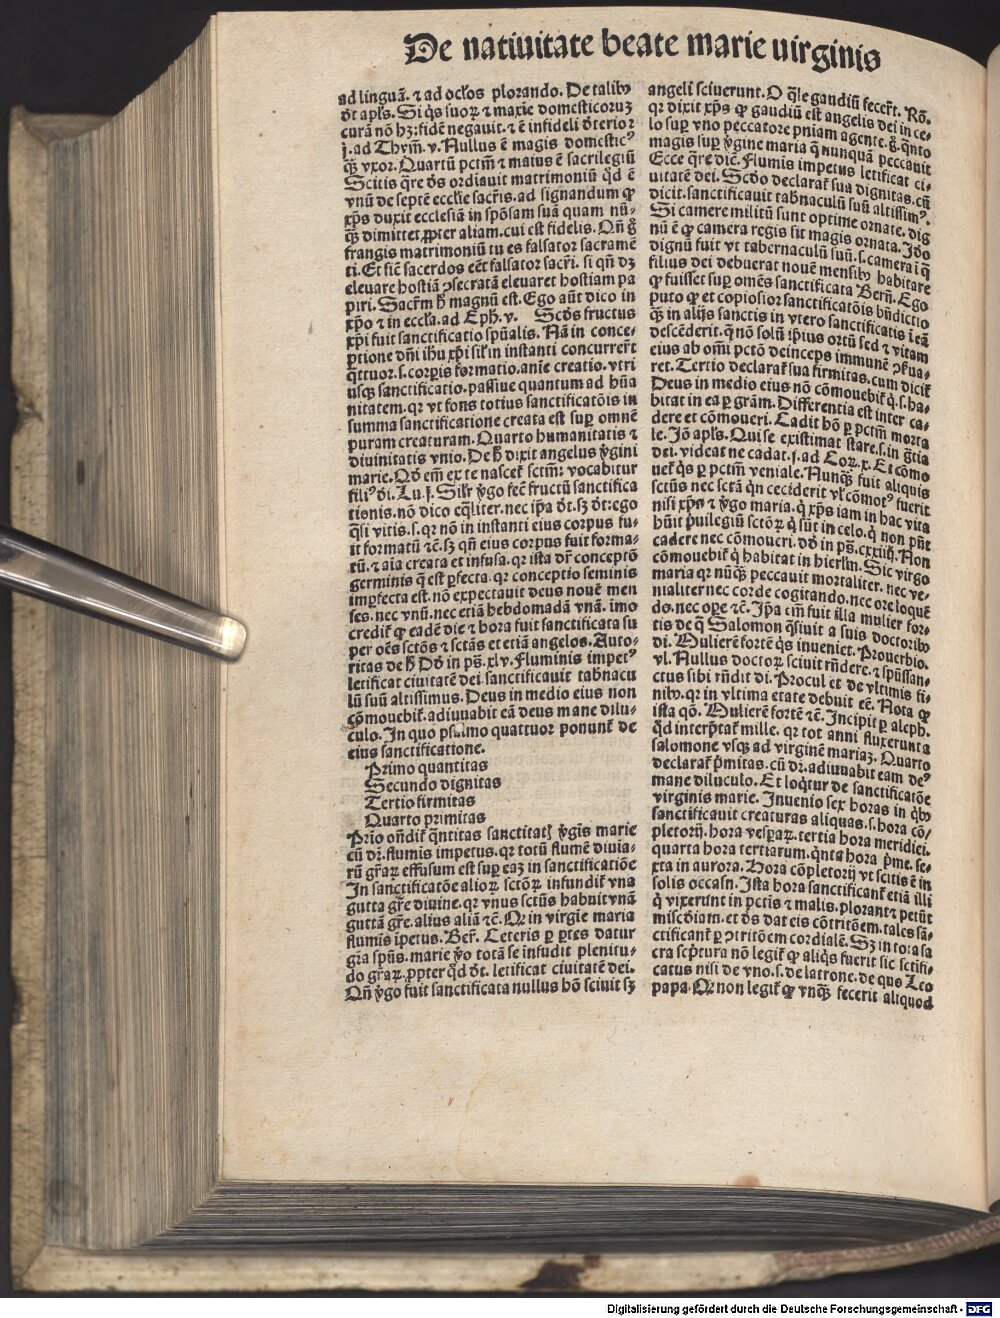 De natiuitate beate marie uirginis
ad linguã. ⁊ ad oclos plorando. De talibꝰ
dt apls. Si q̃s suoꝝ ⁊ maxie domesticoruʒ
curã nõ hʒ: fidẽ negauit. ⁊ ẽ infideli deterior
j. ad Thym̃. v. Nullus ẽ magis domesticꝰ
qʒ̃ vxor. Quartũ pctm̃ ⁊ maius ẽ sacrilegiũ
Scitis q̃re ds̃ ordiauit matrimoniũ qd̃ ẽ
vnũ de septẽ ecclie sacrĩs. ad signandum ꝙ
xp̃s duxit ecclesiã in spõsam suã quam nũ⸗
qʒ̃ dimittet ꝓpter aliam. cui est fidelis. Qñ g̊
frangis matrimoniũ tu es falsator sacramẽ
ti. Et siẽ sacerdos eẽt falsator sacri. si qñ dʒ
eleuare hostiã ꝯsecratã eleuaret hostiam pa
piri. Sacrm̃ h̃ magnũ est. Ego aũt dico in
xp̃o ⁊ in eccl̃a. ad Eph. v. Scd̃s fructus
xp̃i fuit sanctificatio spũalis. Nã in conce⸗
ptione dñi ih̃u xp̃i sil̃ in instanti concurrer̃t
q̃ttuor. s. corpĩs formatio. anie creatio. vtri
usqʒ sanctificatio. passiue quantum ad hũa
nitatem. qr vt fons totius sanctificatõis in
summa sanctificatione creata est suꝑ omnẽ
puram creaturam. Quarto humanitatis ⁊
diuinitatis vnio. De h̃ dixit angelus v̓gini
marie. Qd̃ em̃ ex te nascet̃ sctm̃: vocabitur
filiꝰ di. Lu. j. Silr̃ v̓go fec̃ fructũ sanctifica
tionis. nõ dico eq̃liter. nec ip̃a dt. sʒ dt: ego
q̃si vitis. s. qr nõ in instanti eius corpus fu⸗
it formatũ ⁊c̃. sʒ qñ eius corpus fuit forma⸗
tũ. ⁊ aĩa creata et infusa. qr ista dr̃ conceptõ
germinis q̃ est ꝑfecta. qr conceptio seminis
imꝑfecta est. nõ expectauit deus nouẽ men
ses. nec vnũ. nec etiã hebdomadã vnã. imo
credit̃ ꝙ eadẽ die ⁊ hora fuit sanctificata su
per oẽs sctõs ⁊ sctãs et etiã angelos. Auto⸗
ritas de h̃ Dd̃ in ps̃. xlv. Fluminis impetꝰ
letificat ciuitatẽ dei. sanctificauit tabnacu
lũ suũ altissimus. Deus in medio eius non
cõmouebit̃. adiuuabit eã deus mane dilu⸗
culo. In quo psalmo quattuor ponunt̃ de
eius sanctificatione.
Primo quantitas
Secundo dignitas
Tertio firmitas
Quarto primitas
Prio oñdit̃ q̃ntitas sanctitatꝭ v̓gĩs marie
cũ dr̃. flumis impetus. qr totũ flumẽ diuia⸗
rũ gr̃aꝝ effusum est suꝑ eaʒ in sanctificatiõe
In sanctificatõe alioꝝ sctõꝝ infundit̃ vna
gutta gr̃e diuine. qr vnus sctũs habuit vnã
guttã gr̃e. alius aliã ⁊c̃. Qr in virgie maria
flumis ĩpetus. Ber̃. Ceteris ꝑ ꝑtes datur
gr̃a spũs. marie v̓o tota se infudit plenitu⸗
do gr̃aꝝ. ꝓpter qd̃ dt. letificat ciuitatẽ dei.
Qñ v̓go fuit sanctificata nullus hõ sciuit sʒ
angeli sciuerunt. O q̃le gaudiũ fecer̃t. Rõ.
qr dixit xp̃s ꝙ gaudiũ est angelis dei in ce⸗
lo suꝑ vno peccatore pniam agente. g̊. q̃nto
magis suꝑ v̓gine maria q̃ nunquã peccauit
Ecce q̃re dic̃. Flumis impetus letificat ci⸗
uitatẽ dei. Scd̃o declarat̃ sua dignitas. cũ
dicit. sanctificauit tabnaculũ suũ altissimꝰ.
Si camere militũ sunt optime ornate. dig
nũ ẽ ꝙ camera regis sit magis ornata. Jdo
dignũ fuit vt tabernaculũ suũ. s. camera ĩ q̃
filius dei debuerat nouẽ mensibꝰ habitare
ꝙ fuisset suꝑ omẽs sanctificata Bern̄. Ego
puto ꝙ et copiosior sanctificatõis bñdictio
qʒ̃ in alijs sanctis in vtero sanctificatis ĩ eã
descẽderit. q̃ nõ solũ ip̃ius ortũ sed ⁊ vitam
eius ab omĩ pctõ deinceps immunẽ ꝯserua⸗
ret. Tertio declarat̃ sua firmitas. cum dicit̃
Deus in medio eius nõ cõmouebit̃ q̃. s. ha⸗
bitat in ea ꝑ grãm. Differentia est inter ca⸗
dere et cõmoueri. Cadit hõ ꝑ pctm̃ morta
le. Jõ apls. Qui se existimat stare. s. in gr̃tia
dei. videat ne cadat. j. ad Coꝝ. x. Et cõmo
uet̃ q̃s ꝑ pctm̃ veniale. Nunqʒ̃ fuit aliquis
sctũs nec sctã qñ ceciderit vl̃ cõmotꝰ fuerit
nisi xp̃s ⁊ v̓go maria. q̃ xp̃s iam in hac vita
hũit p̃uilegiũ sctõꝝ q̃ sũt in celo. q̃ non pñt
cadere nec cõmoueri. dd̃ in ps̃. cxxiiij. Non
cõmouebit̃ q̃ habitat in hierlm̃. Sic virgo
maria qr nũqʒ̃ peccauit mortaliter. nec ve⸗
nialiter nec corde cogitando. nec ore loquẽ
do. nec oꝑe ⁊c̃. Jp̃a em̃ fuit illa mulier for⸗
tis de q̃ Salomon q̃siuit a suis doctoribꝰ
di. Mulierẽ fortẽ q̃s inueniet. Prouerbio.
vl. Nullus doctoꝝ sciuit rñdere. ⁊ spũssan⸗
ctus sibi rñdit di. Procul et de vltimis fi⸗
nibꝰ. qr in vltima etate debuit eẽ. Nota ꝙ
ista qõ. Mulierẽ fortẽ ⁊c̃. Incipit ꝑ aleph.
qd̃ interp̃tat̃ mille. qr tot anni fluxerunt a
salomone vsqʒ ad virginẽ mariaʒ. Quarto
declarat̃ p̃mitas. cũ dr̃. adiuuabit eam deꝰ
mane diluculo. Et loq̃tur de sanctificatõe
virginis marie. Inuenio sex horas in q̃bꝰ
sanctificauit creaturas aliquas. s. hora cõ⸗
pletorij. hora vesꝑaꝝ. tertia hora meridiei.
quarta hora tertiarum. q̃nta hora p̃me. se⸗
xta in aurora. Hora cõpletorij vt scitis ẽ in
solis occasu. Ista hora sanctificant̃ etiã illi
q̃ vixerunt in pctis ⁊ malis. plorant ⁊ petũt
misc̃diam. et ds̃ dat eis cõtritõem. tales sã⸗
ctificant̃ ꝑ ꝯtritõem cordialẽ. Sʒ in tota sa
cra scp̃tura nõ legit̃ ꝙ aliq̃s fuerit sic sctifi⸗
catus nisi de vno. s. de latrone. de quo Leo
papa. Qr non legit̃ ꝙ vnqʒ̃ fecerit aliquod
Digitalisierung gefördert durch die Deutsche Forschungsgemeinschaft - DFG